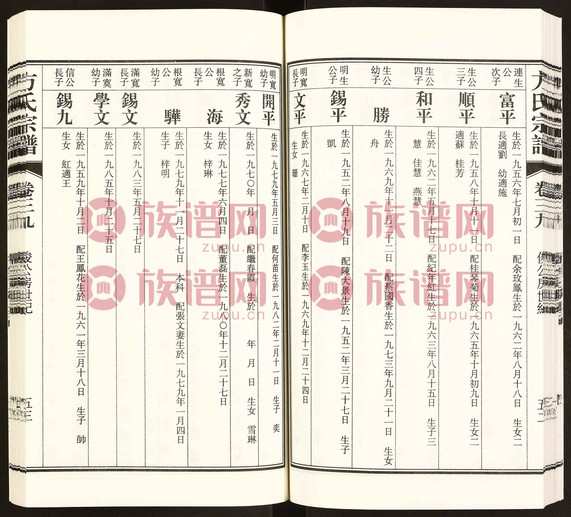 方氏宗譜
卷三九
五二
連生公次子
富平
生於一九五六年七月初一日 配余玫鳳生於一九五二年 月 日 生女二
長適劉 幼適施
生公三子
順平
生於一九五八年十一月十日 配桂又菊生於一九六五年十月初九日 生女二
適蘇 桂芳
生公四子
和平
生於一九六二年五月十一日 配紀年紅生於一九六三年八月十五日 生子三
慧 佳慧 燕慧
生公幼子
勝
生於一九六九年十二月二十二日 配蔡國香生於一九七三年九月二十一日 生女
舟
明生公子
錫平
生於一九五二年八月十九日 配陳大景生於一九五二年三月二十七日 生子
凱
明寬長子
文平
生於一九六七年二月十日 配李玉生於一九六九年十二月十四日
生女 珊
明寬幼子
開平
生於一九七九年五月三日 配何苗生於一九八二年二月十一日 生子 奕
新寬之子
秀文
生於一九七〇年 月 日 配繼春霞 生於 年 月 日 生女 雪琳
根寬長子
海
生於一九七七年六月四日 配董磊生於一九八〇年十二月二十七日
生女 梓琳
根寬公幼子
驊
生於一九七九年十一月二十七日 本科 配張文妻生於一九七九年一月四日
生子 梓明
滿寬長子
錫文
滿寬幼子
學文
生於一九八五年十月二十五日
信公長子
錫九
生於一九五九年十月二日 配王鳳花生於一九六一年三月十八日 生子 帥
生女 紅適王
方氏宗譜
卷三九
駿公房世紀
五三
族谱网
zupu.cn
族谱网
zupu.cn
族谱网
zupu.cn
族谱网
zupu.cn